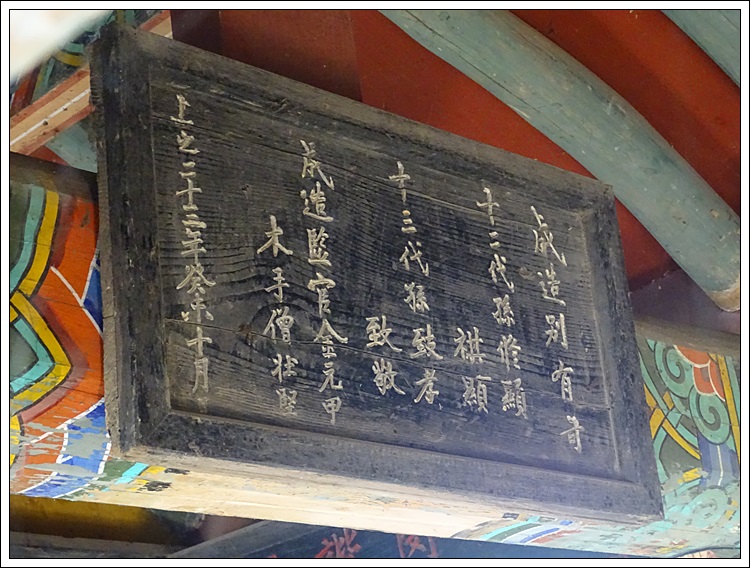 成造別有司
十二代孫佮顯
祺顯
十三代孫致孝
致敬
成造監官金元甲
木手僧壯堅
上之二十三年癸未十月